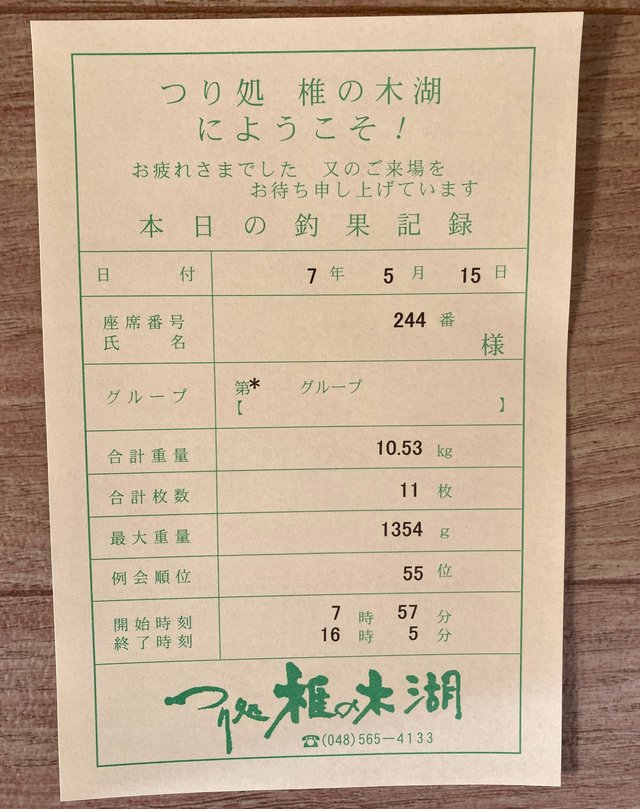 つり処 椎の木湖
にようこそ！
お疲れさまでした 又のご来場を
お待ち申し上げています
本日の釣果記録
日付 7年 5月 15日
座席番号 244番
氏名 様
グループ 第* グループ
【 】
合計重量 10.53 kg
合計枚数 11 枚
最大重量 1354 g
例会順位 55 位
開始時刻 7 時 57 分
終了時刻 16 時 5 分
つり処 椎の木湖
☎(048)565―4133